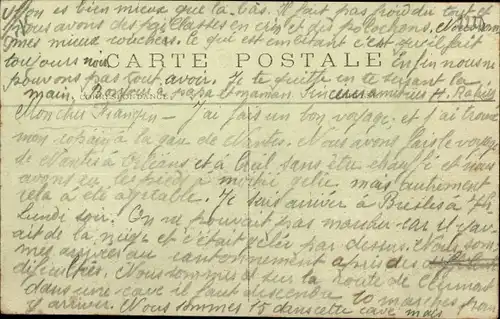 Mon es bien mieux que la bas. Il fait pas froid du tout et
nous avons des paillasses en crin et des polochons. Nous som
mes mieux couchers. Ce qui est embêtant c'est qu'il fait
toujours noir
CARTE POSTALE
Enfin nous ne
pouvons pas tout avoir. Je te quitte en te serrant la
main. Bonjour à papa et maman. Sincères amitiés H.
Mon cher François — J'ai fais un bon voyage, et j'ai trouvé
mon copain à la gare de Nantes. Nous avons fais le voyage
de Nantes à Orléans et à Creil sans être chauffé et nous
avons eu les pieds à moitié gelie, mais autrement
cela a été agréable. Je suis arriver à Bresles à 7 h
lundi soir. On ne pouvait pas marcher car il y av
ait de la neige et c'était gelée par dessus. Nous som
mes arrivés au cantonnement après des
dificultés. Nous sommes ici sur la route de Clermont
dans une cave il faut descendre 10 marches pour
y arriver. Nous sommes 15 dans cette cave mais